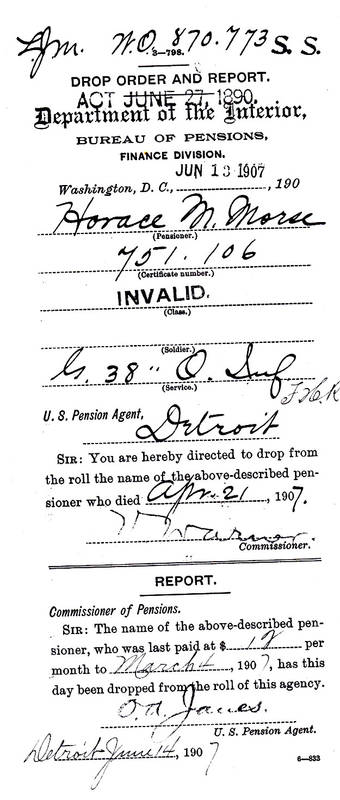 W.O. 870.773 S. S.
3—798.
DROP ORDER AND REPORT.
ACT JUNE 27, 1890.
Department of the Interior,
BUREAU OF PENSIONS,
FINANCE DIVISION.
JUN 13 1907
Washington, D. C., , 190
Horace M. Morse
(Pensioner.)
751.106
(Certificate number.)
INVALID.
(Class.)
(Soldier.)
G. 38" O. Inf
(Service.)
U. S. Pension Agent,
Detroit
SIR: You are hereby directed to drop from
the roll the name of the above-described pen-
sioner who died Apr. 21, 1907.
V Warner.
Commissioner.
REPORT.
Commissioner of Pensions.
SIR: The name of the above-described pen-
sioner, who was last paid at $ 12 per
month to March 4, 1907, has this
day been dropped from the roll of this agency.
O. A. Janes.
U. S. Pension Agent.
Detroit June 14, 1907
6—833